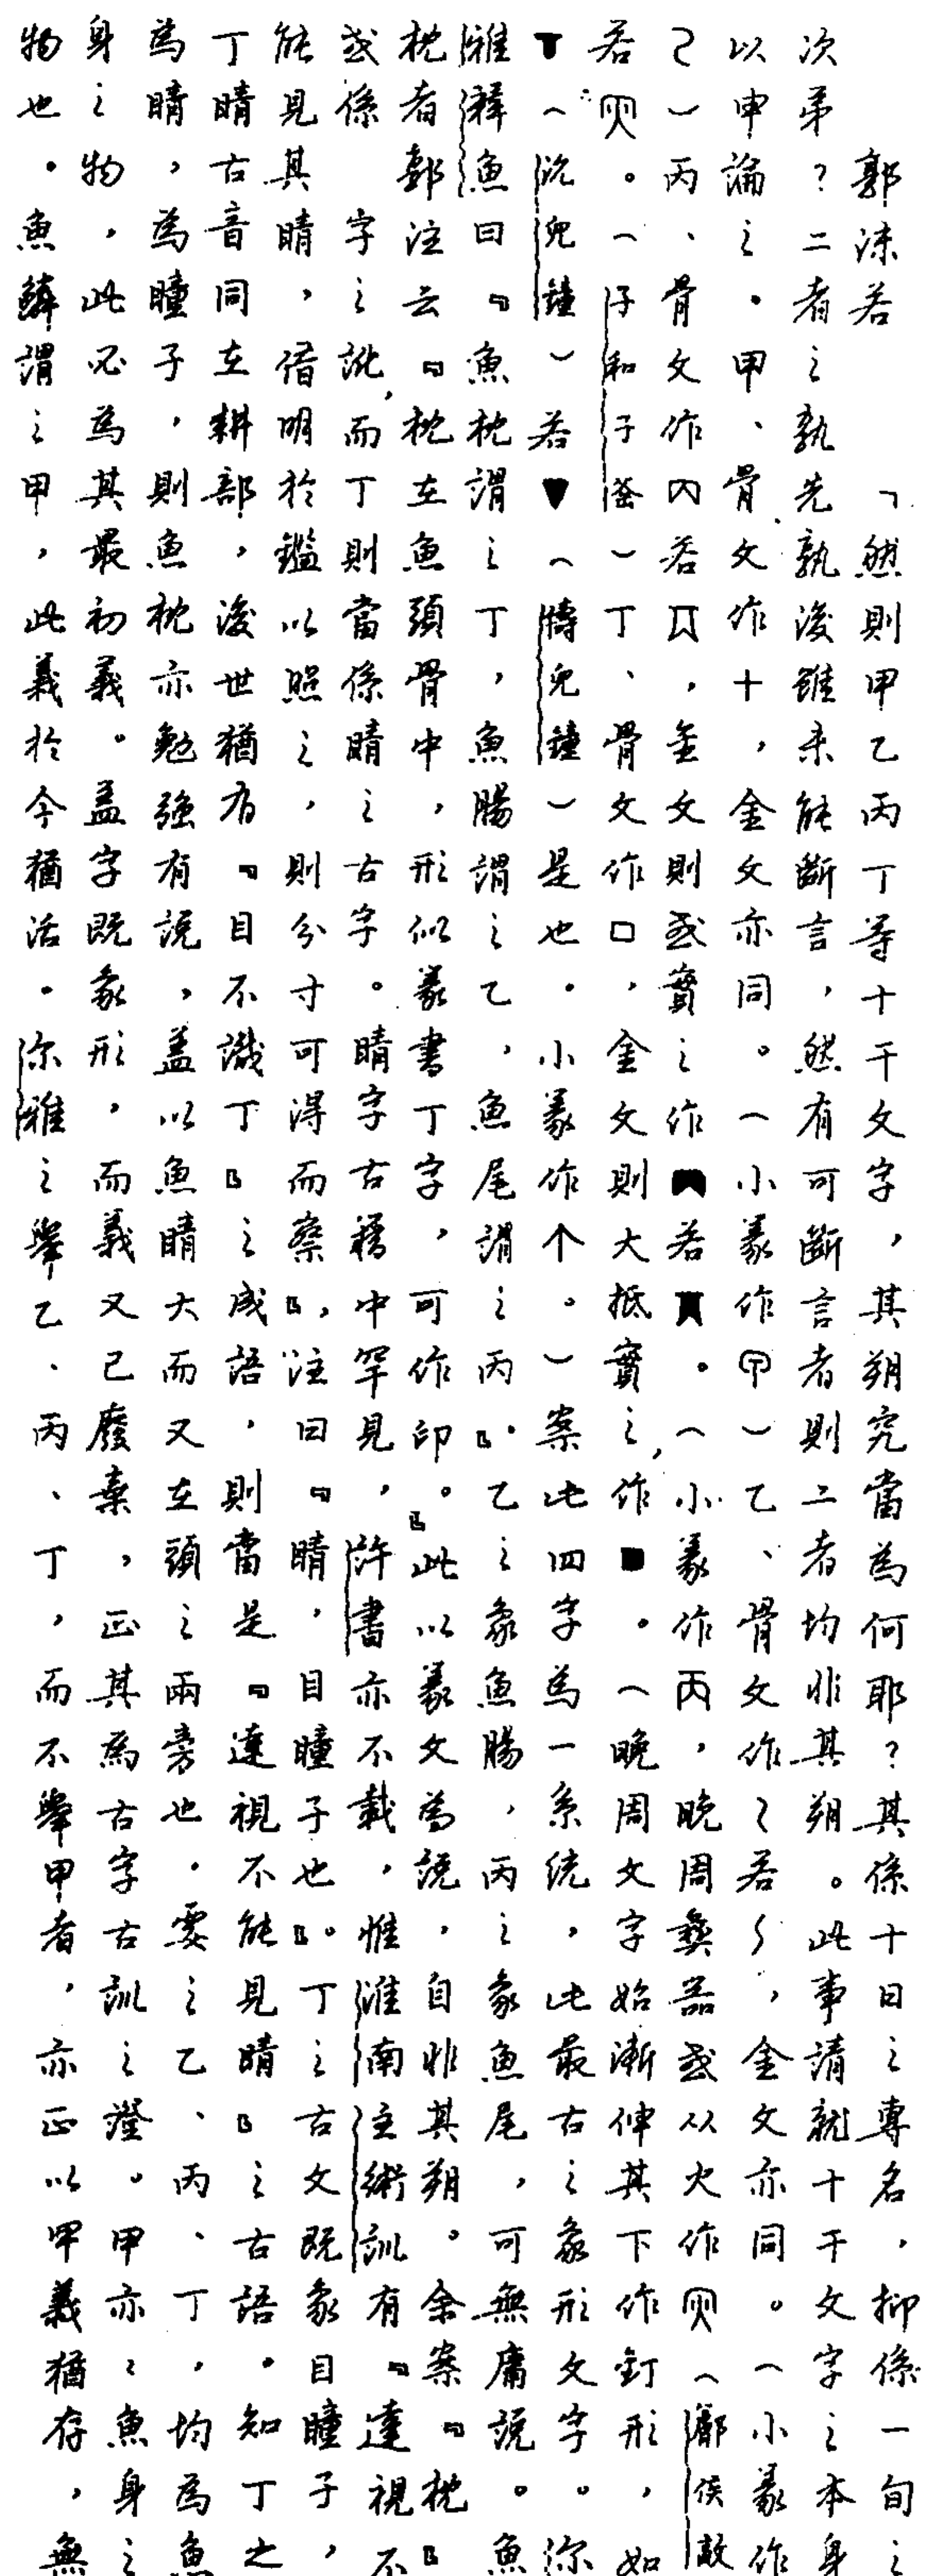 郭沫若　「然則甲乙丙丁等十干文字，其朔究當為何耶？其係十日之專名，抑係一旬之
次弟？二者之孰先孰後雖未能斷言，然有可斷言者則二者均非其朔。此事請就十干文字之本身
以申論之。甲、骨文作十，金文亦同。（小篆作甲）乙、骨文作乙若，金文亦同。（小篆作
乙）丙、骨文作丙若，金文則或實之作若。（小篆作丙，晚周彝器或从火作（郾侯敦
若。（子和子釜）丁、骨文作口，金文則大抵實之，作■。（晚周文字始漸伸其下作釘形，如
▼（沇兒鐘）若▼（㝬兒鐘）是也。小篆作个。）案此四字為一系統，此最古之象形文字。尔
雅釋魚曰『魚枕謂之丁，魚腸謂之乙，魚尾謂之丙』。乙之象魚腸，丙之象魚尾，可無庸說。魚
枕者郭注云『枕在魚頭骨中，形似篆書丁字，可作印。』此以篆文為說，自非其朔。余案『枕』
或係　字之訛，而丁則當係睛之古字。睛字古籍中罕見，許書亦不載，惟淮南主術訓有『達視不
能見其睛，借明於鑑以照之，則分寸可得而察』，注曰『睛，目瞳子也』。丁之古文既象目瞳子，
丁睛古音同在耕部，後世猶有『目不識丁』之成語，則當是『達視不能見睛』之古語。知丁之
為睛，為瞳子，則魚枕亦勉強有說，蓋以魚睛大而又在頭之兩旁也。要之乙、丙、丁，均為魚
身之物，此必為其最初義。蓋字既象形，而義又已廢棄，正其為古字古訓之證。甲亦〻魚身之
物也。魚鱗謂之甲，此義於今猶活。尔雅之舉乙、丙、丁，而不舉甲者，亦正以甲義猶存，無